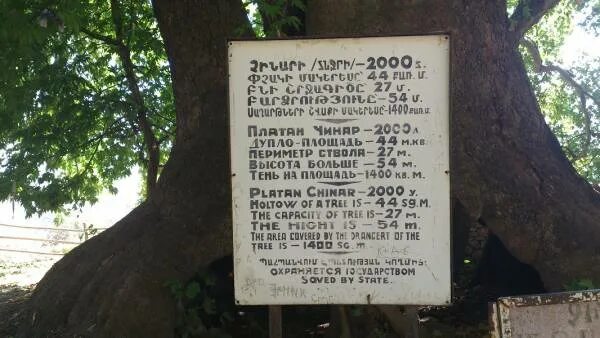 ՉԻՆԱՐԻ /ՏՆՋՐԻ/–2000 Տ.
ՓՉԱԿԻ ՄԱԿԵՐԵՍԸ 44 ՔԱՌ. Մ.
ԲՆԻ ՇՐՋԱԳԻԾԸ 27 Մ.
ԲԱՐՁՐՈՒԹՅՈՒՆԸ – 54 Մ.
ՍԱՂԱՐԹՆԵՐԻ ՇՎԱՔԻ ՄԱԿԵՐԵՍԸ-1400 ՔԱՌ.Մ.
ПЛАТАН ЧИНАР – 2000 Л.
ДУПЛО-ПЛОЩАДЬ – 44 М.КВ.
ПЕРИМЕТР СТВОЛА – 27 М.
ВЫСОТА БОЛЬШЕ – 54 М.
ТЕНЬ НА ПЛОЩАДЬ – 1400 КВ. М.
PLATAN CHINAR – 2000 Y.
HOLTOW OF A TREE IS – 44 SQ.M.
THE CAPACITY OF TREE IS – 27 M.
THE HIGHT IS – 54 M.
THE AREA COVERED BY THE DRANCERT OF THE
TREE IS – 1400 SQ. M.
ՊԱՀՊԱՆՎՈՒՄ Է ՊԵՏՈՒԹՅԱՆ ԿՈՂՄԻՑ:
ОХРАНЯЕТСЯ ГОСУДАРСТВОМ
SOVED BY STATE.